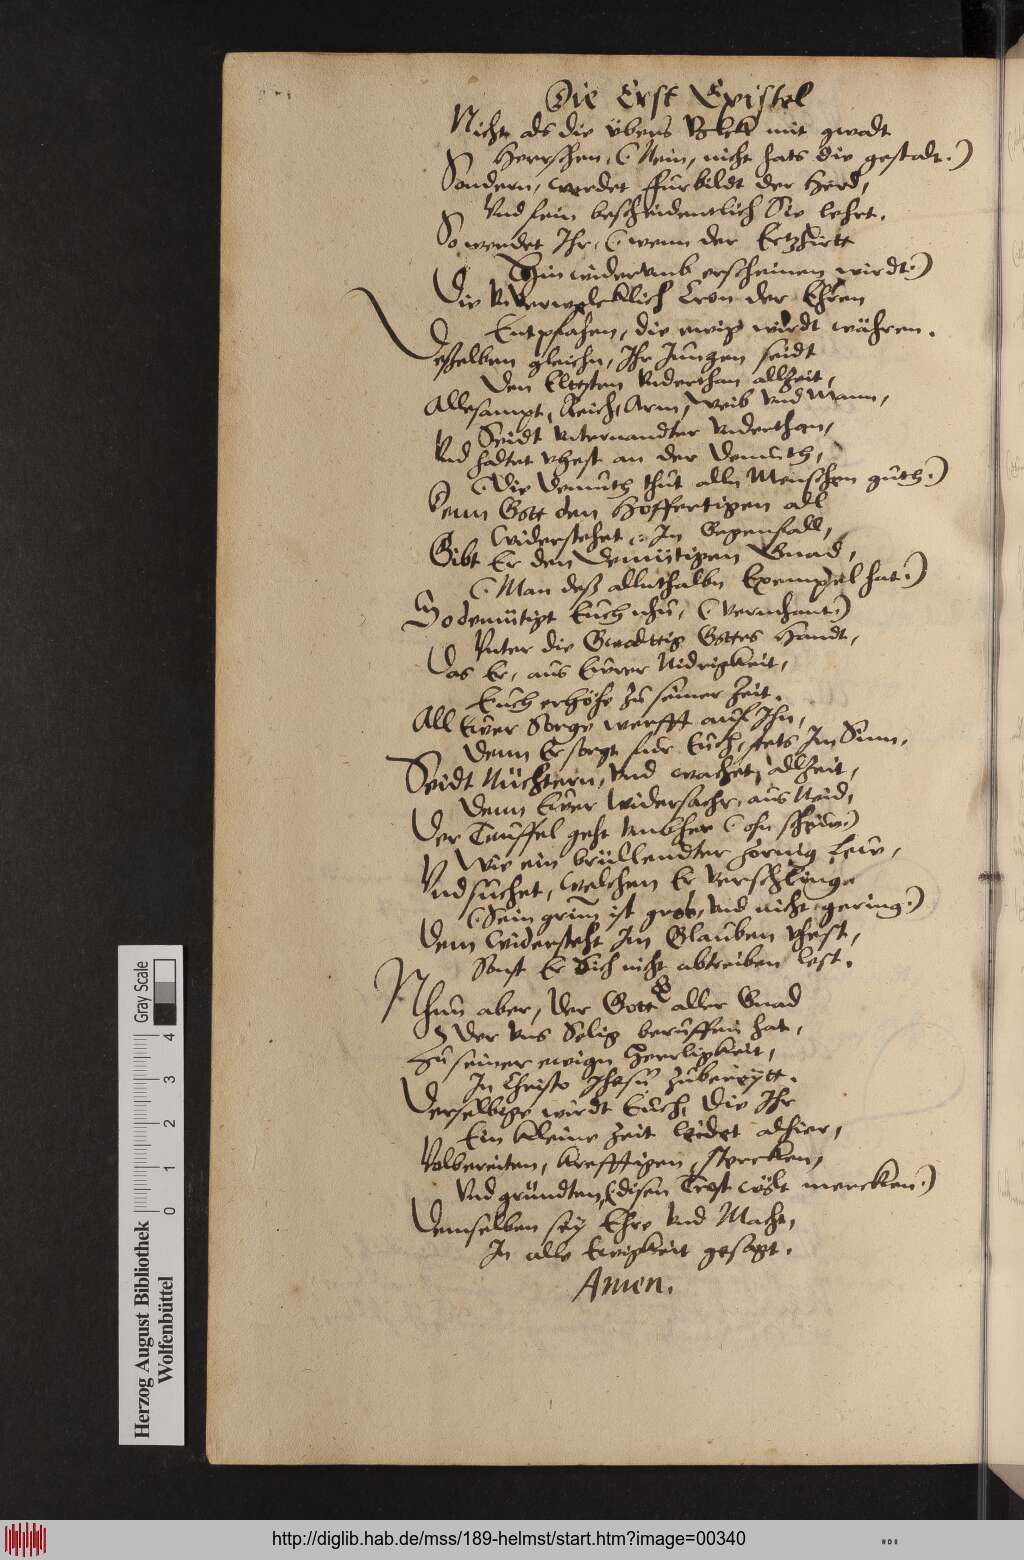 Die Erst Epistel
Nicht als die übers Volck mit gwalt
Herrschen, (Nein, nicht hats die gestalt.)
Sondern, werdet furbildt der Herd,
Vnd fein bescheidentlich Sie lehrt.
So werdet Ihr, (wenn der Ertzhirtt
Hin widerumb erscheinen wirdt.)
Die Vnverwelcklich Cron der Ehren
Entpfahen, die ewig wirdt währen.
Deßelben gleichn, Ihr Jungen seidt
Den Eltesten Vnderthan allzeit,
Allesampt, Reich, Arm, Weib Vnd Mann,
Seidt Vnternandter Vnderthan,
Vnd haltet vhest an der Demuth,
(Die Demuth thut alln Menschen guth.)
Denn Gott den Hoffertigen all
Widerstehet, In Gegenfall,
Gibt Er den Demütigen Gnad,
(Man deß allnthalbn Exempel hat.)
So demütigt Euch nhu, (vermhant)
Vnter die Gwaltig Gottes Handt,
Das Er, aus Eurer Nidrigkeit,
Euch erhöhe zu seiner Zeit.
All Ewer Sorge werfft auf Ihn,
Denn Er sorgt fur Euch, stets Im Sinn,
Seidt Nüchtern, Vnd wachet allzeit,
Denn Ewer Widersachr, aus Neid,
Der Teuffel geht Vmbher (ohn schew)
Wie ein brüllendter zornig Lew,
Vnd suchet, welchen Er Verschlinge
(Sein grim ist gros, Vnd nicht gering.)
Dem Widersteht Im Glauben vhest,
Sonst Er Sich nicht abtreiben lest.
Nhun aber, der Gott aller Gnad
Der Vns Selig beruffen hat,
Zu seiner ewign Herrligkeit,
In Christo Jhesu zubereytt.
Derselbige wirdt Euch, Die Ihr
Ein kleine Zeit leidet alhier,
Volbereiten, krefftigen, stercken,
Vnd gründten, (disen Trost wölt mercken.)
Demselben sey Ehre Vnd Macht,
In alle Ewigkeit gesagt.
Amen.
Herzog August Bibliothek
Wolfenbüttel
0 1 2 3 4
Gray Scale
http://diglib.hab.de/mss/189-helmst/start.htm?image=00340